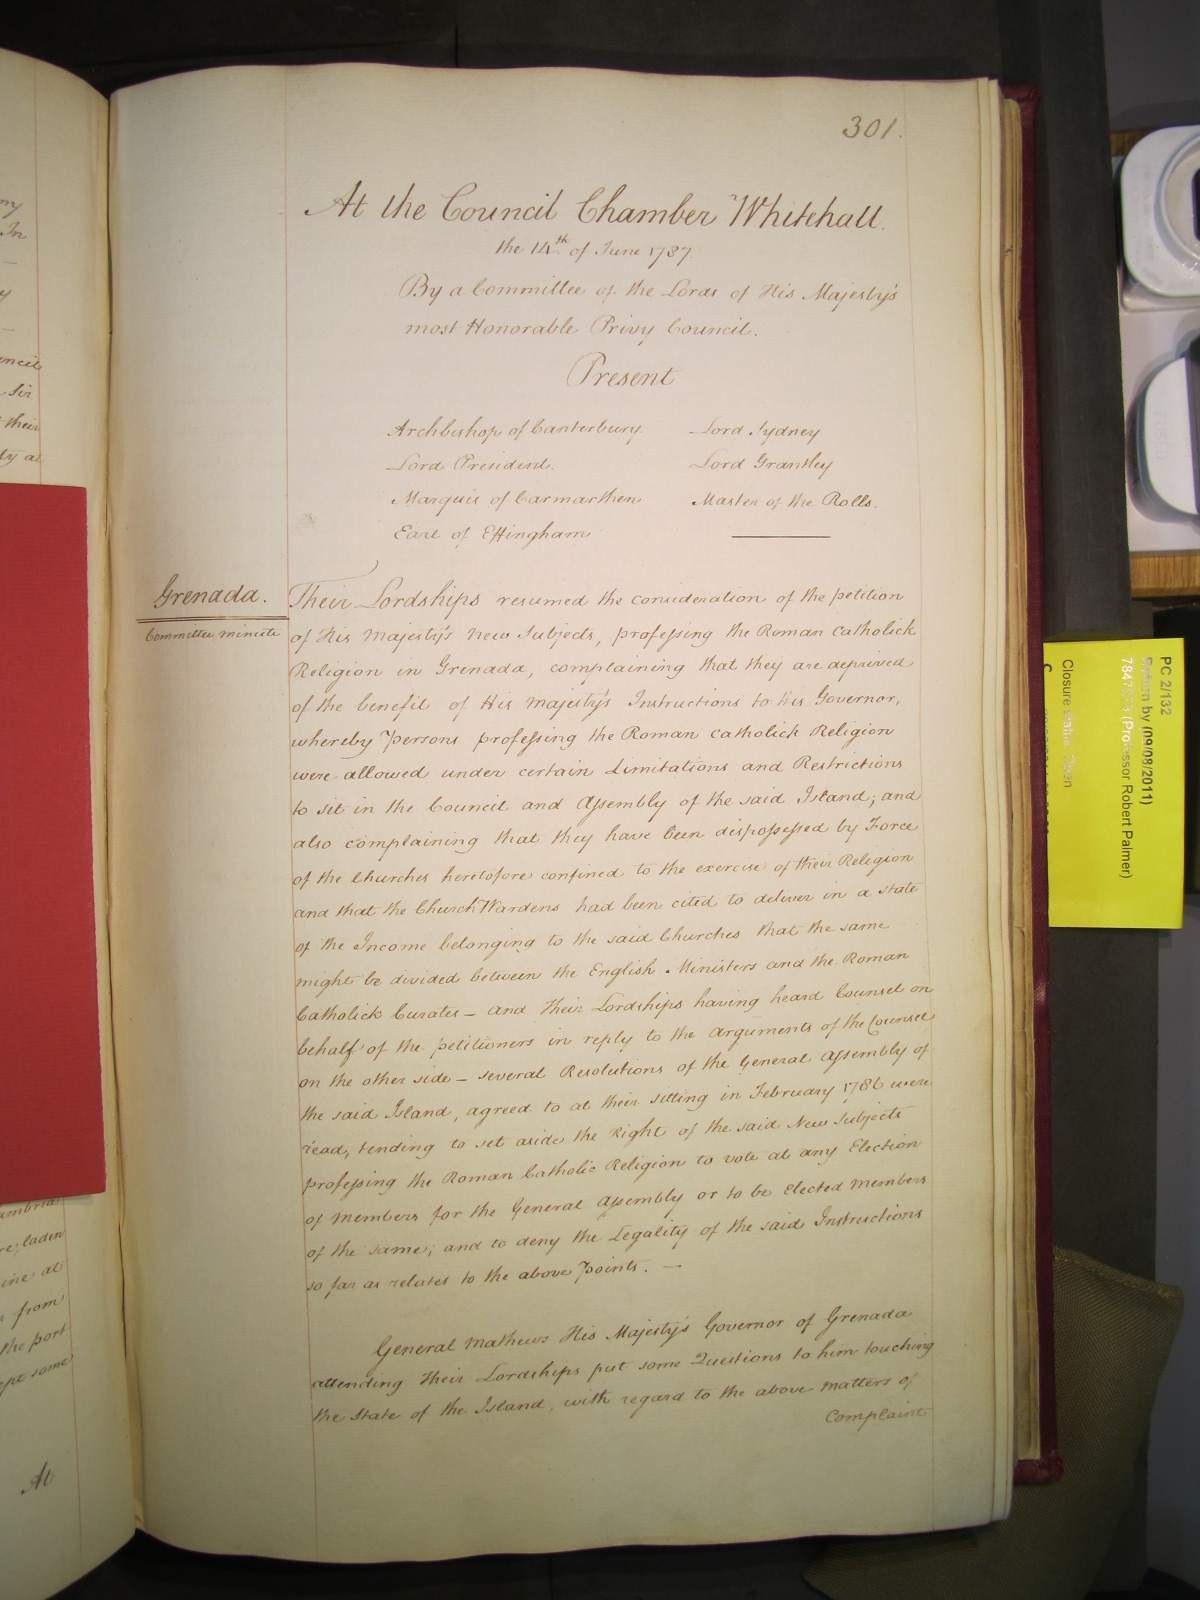 301.
At the Council Chamber Whitehall.
the 14th of June 1787.
By a Committee of the Lords of His Majesty's
most Honorable Privy Council.
Present
Archbishop of Canterbury
Lord President.
Marquis of Carmarthen
Earl of Effingham
Lord Sydney
Lord Grantley
Master of the Rolls.
Grenada.
Committee minute
Their Lordships resumed the consideration of the petition
of His Majesty's new Subjects, professing the Roman Catholick
Religion in Grenada, complaining that they are deprived
of the benefit of His Majesty's Instructions to His Governor,
whereby Persons professing the Roman Catholick Religion
were allowed under certain Limitations and Restrictions
to sit in the Council and Assembly of the said Island; and
also complaining that they have been dispossessed by Force
of the Churches heretofore confined to the exercise of their Religion
and that the Church Wardens had been cited to deliver in a State
of the Income belonging to the said Churches that the same
might be divided between the English Ministers and the Roman
Catholick Curates – and their Lordships having heard Counsel on
behalf of the petitioners in reply to the arguments of the Counsel
on the other side – several Resolutions of the General Assembly of
the said Island, agreed to at their sitting in February 1786 were
read, tending to set aside the Right of the said New Subjects
professing the Roman Catholic Religion to vote at any Election
of Members for the General Assembly or to be Elected Members
of the same; and to deny the Legality of the said Instructions
so far as relates to the above Points. —
General Mathews His Majesty's Governor of Grenada
attending Their Lordships put some Questions to him touching
the State of the Island, with regard to the above matters of
Complaint
ny
In
y
uncil
Sir
their
ty at
umbria
re, laden
ine at
from
the port
ept some
At
PC 2/132
Return by (09/08/2011)
(Professor Robert Palmer)
Closure status: Open